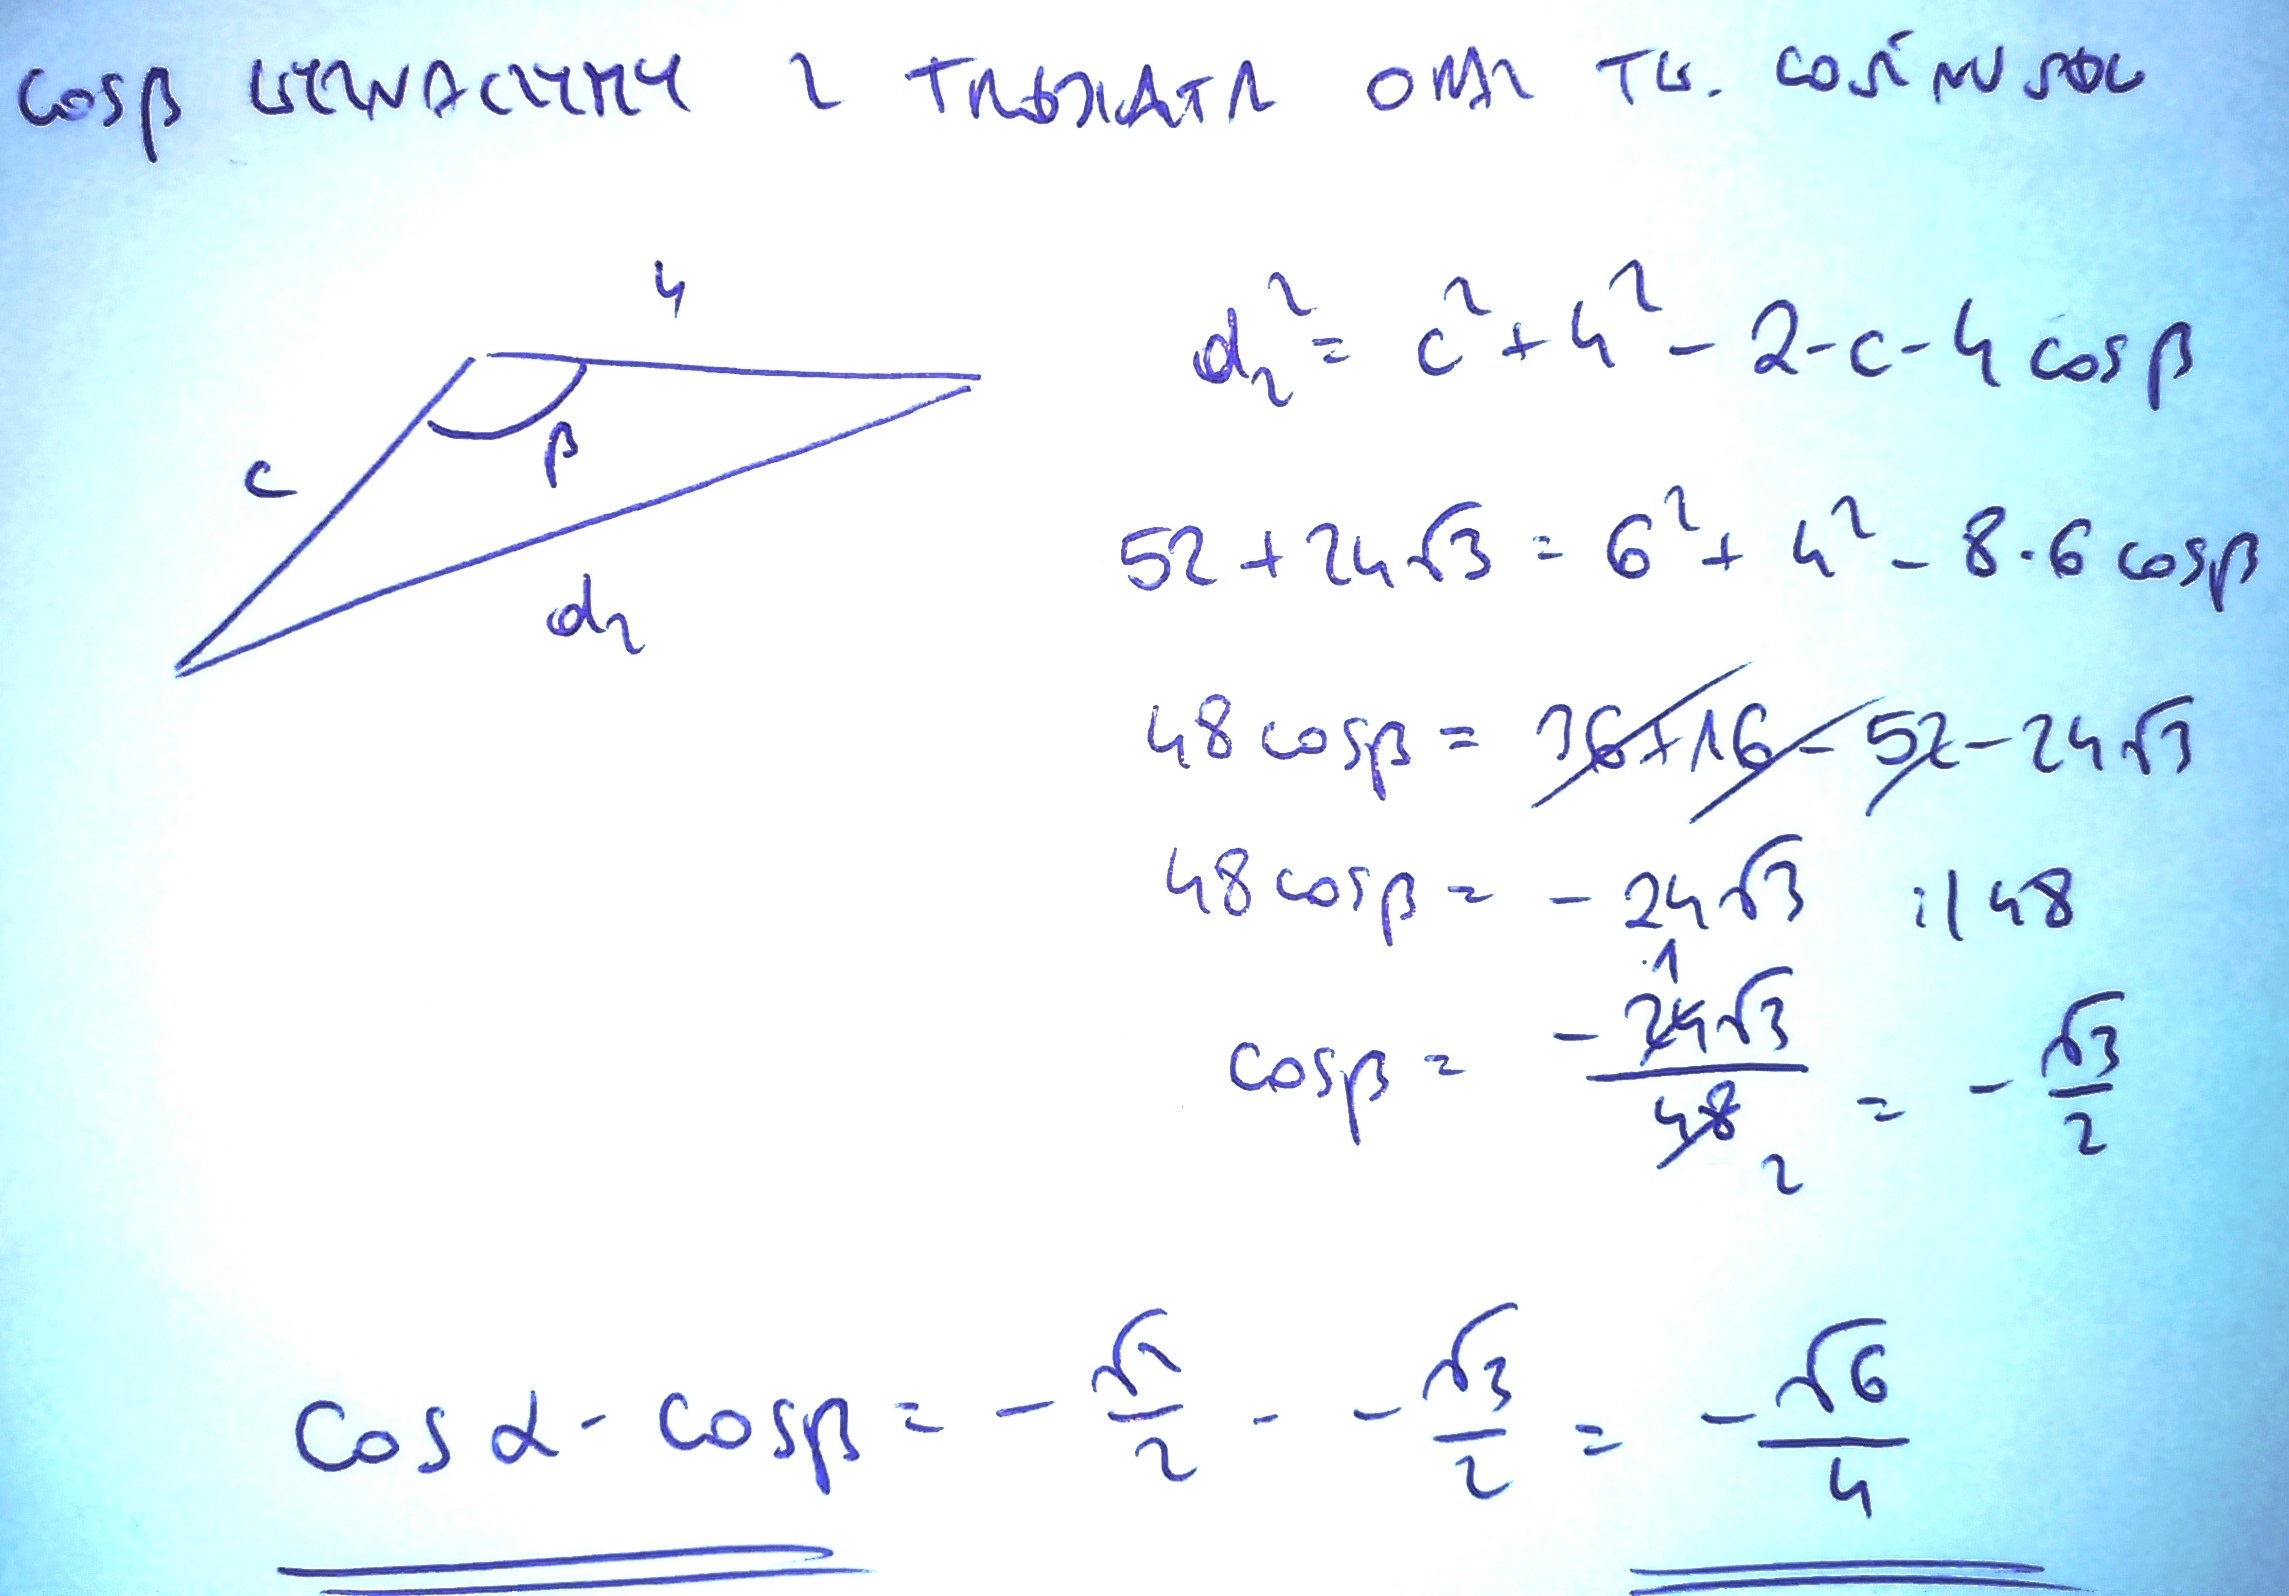 cosβ WYZNACZYMY Z TRÓJKĄTA ORAZ TW. COSINUSÓW
4
c
β
d₂
d₂² = c² + 4² - 2·c·4 cosβ
52 + 24√3 = 6² + 4² - 8·6 cosβ
48 cosβ = 36 + 16 - 52 - 24√3
48 cosβ = - 24√3 :| 48
cosβ = -24√3/48 = - √3/2
1
2
cos α · cosβ = - √2/2 · - √3/2 = - √6/4